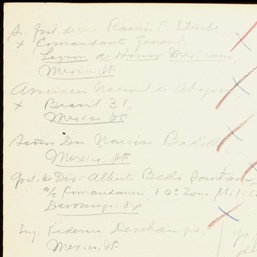 Sr. Gral. de Div. Ramón F. Iturbe,
x Comandante General
Legion de Honor Mexicana
Mexico, D.F.
American National de
x Brasil 31,
Mexico D.F.
Señor Don Narciso Badillo
Mexico, D.F.
Gral. de Div. Alberto
a/c Comandancia 10a Zona Militar
Durango, Dgo
Ing. Federico Deschamps,
Mexico, D.F.